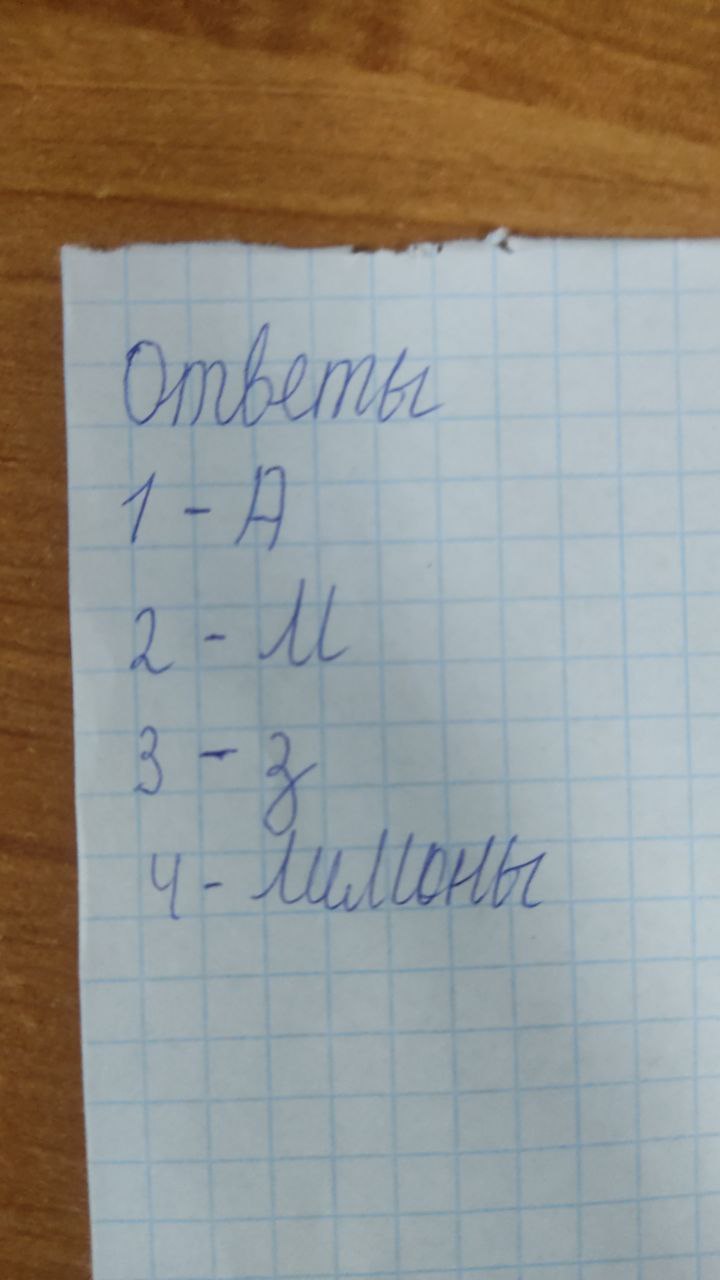 Ответы
1 - А
2 - М
3 - з
4 - Лимоны